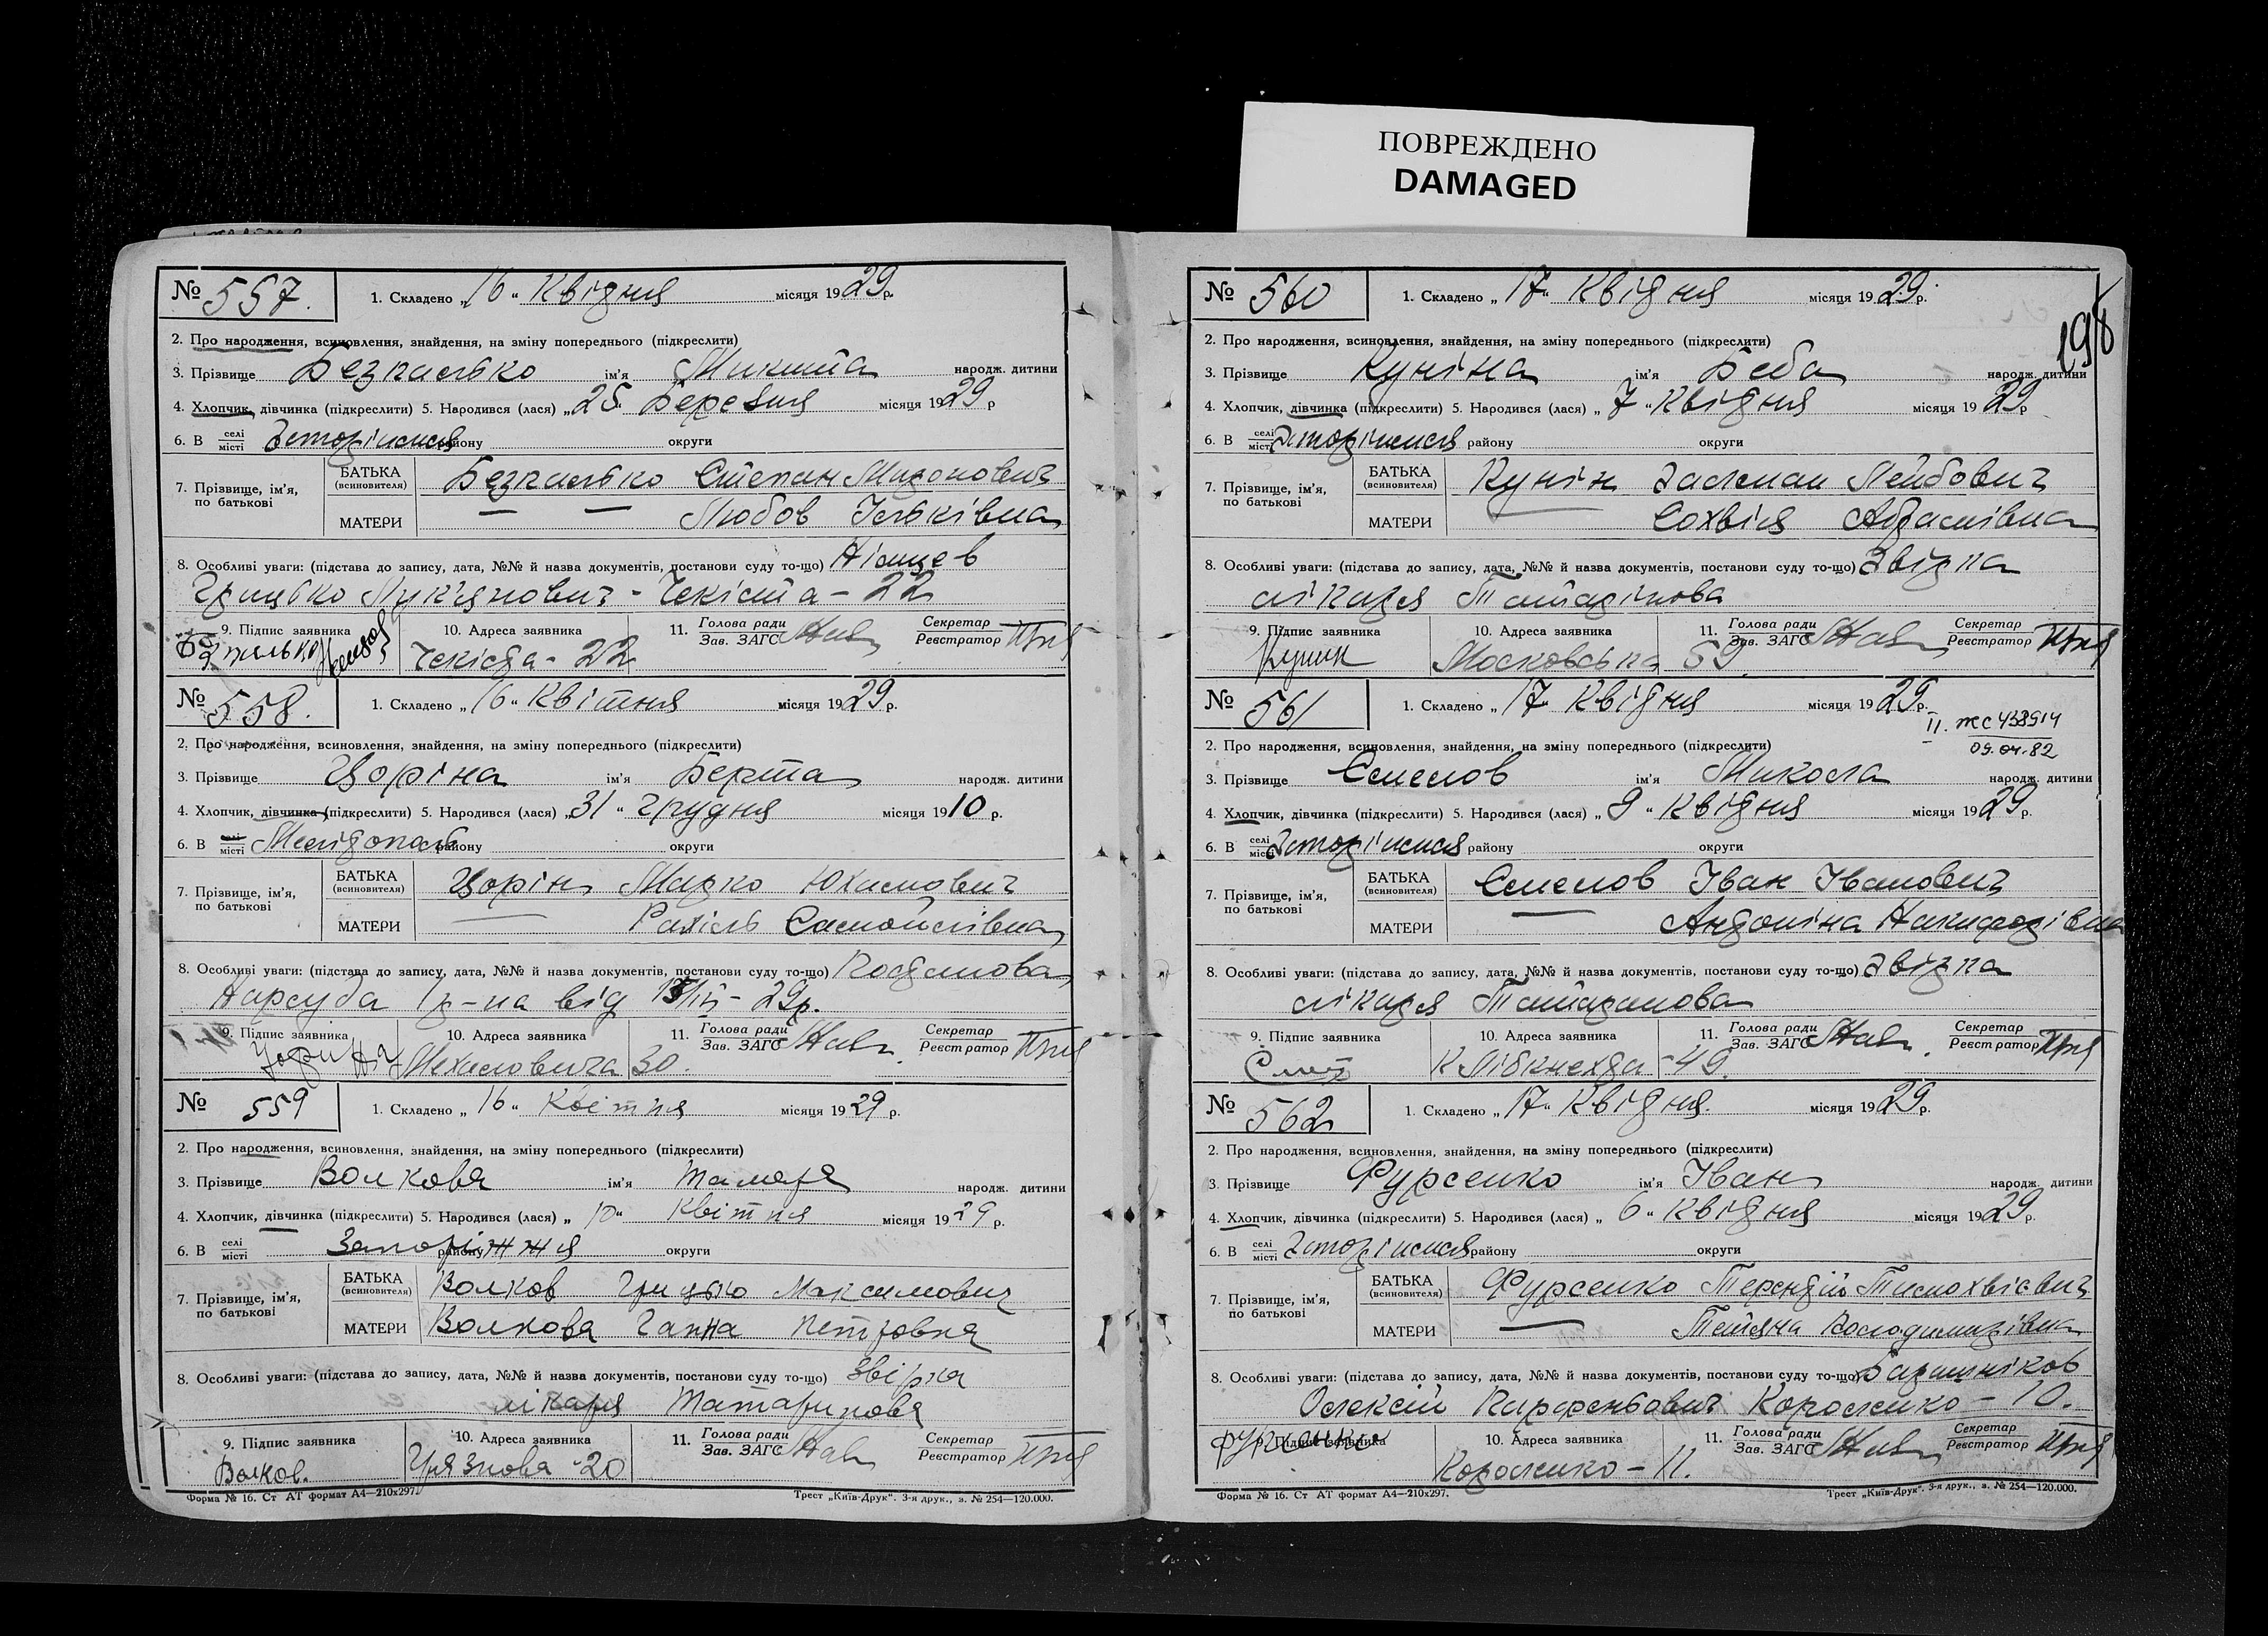 ПОВРЕЖДЕНО
DAMAGED
№ 557. 1. Складено „16“ Квітня місяця 1929 р.
2. Про народження, всиновлення, знайдення, на зміну попереднього (підкреслити)
3. Прізвище Безпалько ім'я Микита народж. дитини
4. Хлопчик, дівчинка (підкреслити) 5. Народився (лася) „25“ Березня місяця 1929 р
6. В селі місті Запоріжжя району округи
7. Прізвище, ім'я, по батькові БАТЬКА (всиновителя) Безпалько Степан Миронович
МАТЕРИ — — Любов Ільківна
8. Особливі уваги: (підстава до запису, дата, №№ й назва документів, постанови суду то-що)
Грицько Лук'янович - Чекіста - 22
9. Підпис заявника 10. Адреса заявника 11. Голова ради Зав. ЗАГС Секретар Реєстратор
Чекіста - 22
№ 558. 1. Складено „16“ Квітня місяця 1929 р.
2. Про народження, всиновлення, знайдення, на зміну попереднього (підкреслити)
3. Прізвище Цоріна ім'я Берта народж. дитини
4. Хлопчик, дівчинка (підкреслити) 5. Народився (лася) „31“ Грудня місяця 1910 р.
6. В селі місті Мелітополь району округи
7. Прізвище, ім'я, по батькові БАТЬКА (всиновителя) Цорін Марко Юхимович
МАТЕРИ — Рахіль Самойлівна
8. Особливі уваги: (підстава до запису, дата, №№ й назва документів, постанови суду то-що) Постанова
Нарсуда 1 р-на від - 29р.
9. Підпис заявника 10. Адреса заявника 11. Голова ради Зав. ЗАГС Секретар Реєстратор
Цорина 30.
№ 559 1. Складено „16“ Квітня місяця 1929 р.
2. Про народження, всиновлення, знайдення, на зміну попереднього (підкреслити)
3. Прізвище Волкова ім'я Тамара народж. дитини
4. Хлопчик, дівчинка (підкреслити) 5. Народився (лася) „10“ Квітня місяця 1929 р.
6. В селі місті Запоріжжя району округи
7. Прізвище, ім'я, по батькові БАТЬКА (всиновителя) Волков Грицько Максимович
МАТЕРИ Волкова Ганна Петровна
8. Особливі уваги: (підстава до запису, дата, №№ й назва документів, постанови суду то-що) Звірка
лікаря Татарінова
9. Підпис заявника 10. Адреса заявника 11. Голова ради Зав. ЗАГС Секретар Реєстратор
Волков. Грязнова - 20
Форма № 16. Ст АТ формат А4—210х297. Трест „Київ-Друк“. 3-я друк., з. № 254—120.000.
№ 560 1. Складено „17“ Квітня місяця 1929 р.
198
2. Про народження, всиновлення, знайдення, на зміну попереднього (підкреслити)
3. Прізвище Куніна ім'я Беба народж. дитини
4. Хлопчик, дівчинка (підкреслити) 5. Народився (лася) „7“ Квітня місяця 1929 р
6. В селі місті Запоріжжя району округи
7. Прізвище, ім'я, по батькові БАТЬКА (всиновителя) Кунін Залман Лейбович
МАТЕРИ — Сохвія Абрамівна
8. Особливі уваги: (підстава до запису, дата, №№ й назва документів, постанови суду то-що) Звірка
лікаря Татарінова
9. Підпис заявника 10. Адреса заявника 11. Голова ради Зав. ЗАГС Секретар Реєстратор
Кунин Московська 59
№ 561 1. Складено „17“ Квітня місяця 1929 р.
II. ЖС 438914
09.04.82
2. Про народження, всиновлення, знайдення, на зміну попереднього (підкреслити)
3. Прізвище Смєлов ім'я Микола народж. дитини
4. Хлопчик, дівчинка (підкреслити) 5. Народився (лася) „9“ Квітня місяця 1929 р.
6. В селі місті Запоріжжя району округи
7. Прізвище, ім'я, по батькові БАТЬКА (всиновителя) Смєлов Іван Іванович
МАТЕРИ — Антоніна Никифорівна
8. Особливі уваги: (підстава до запису, дата, №№ й назва документів, постанови суду то-що) Звірка
лікаря Татаринова
9. Підпис заявника 10. Адреса заявника 11. Голова ради Зав. ЗАГС Секретар Реєстратор
К Лібкнехта - 49.
№ 562 1. Складено „17“ Квітня. місяця 1929 р.
2. Про народження, всиновлення, знайдення, на зміну попереднього (підкреслити)
3. Прізвище Фурсенко ім'я Іван народж. дитини
4. Хлопчик, дівчинка (підкреслити) 5. Народився (лася) „6“ Квітня місяця 1929 р.
6. В селі місті Запоріжжя району округи
7. Прізвище, ім'я, по батькові БАТЬКА (всиновителя) Фурсенко Терентій Тимохвієвич
МАТЕРИ — Тетяна Володимирівна
8. Особливі уваги: (підстава до запису, дата, №№ й назва документів, постанови суду то-що)
Олексій Короленко - 10.
9. Підпис заявника 10. Адреса заявника 11. Голова ради Зав. ЗАГС Секретар Реєстратор
Короленко - 11.
Форма № 16. Ст АТ формат А4—210х297. Трест „Київ-Друк“. 3-я друк., з. № 254—120.000.